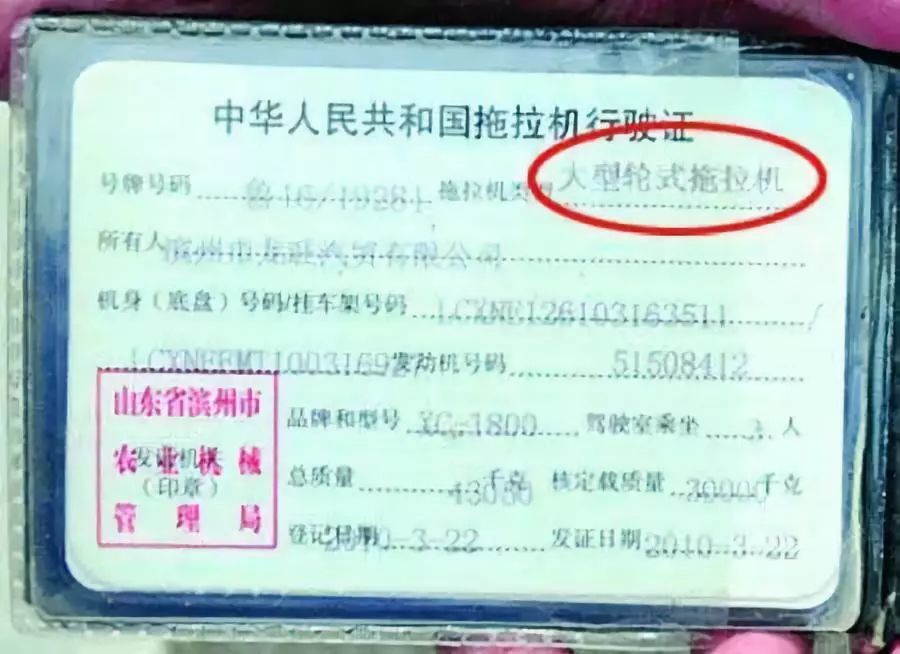 中华人民共和国拖拉机行驶证
号牌号码 鲁16/19281 拖拉机类型 大型轮式拖拉机
所有人 滨州市龙旺汽贸有限公司
机身（底盘）号码/挂车架号码 LCXNE126103163511 /
发动机号码 51508412
山东省滨州市
农业机械
管理局
发证机关
（印章）
品牌和型号 XG-1800 驾驶室乘坐 3 人
总质量 千克 核定载质量 30000千克
登记日期 2010-3-22 发证日期 2010-3-22